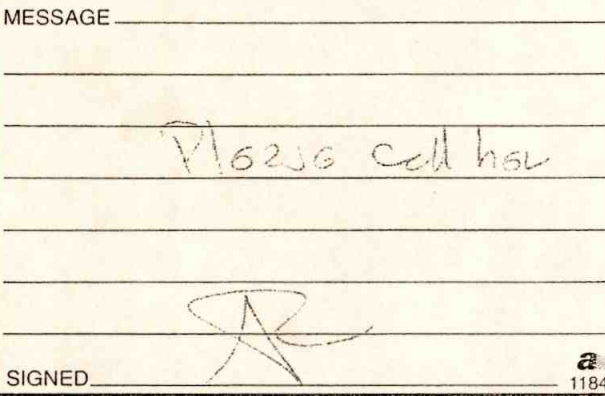 MESSAGE
Please call her
SIGNED
a
1184